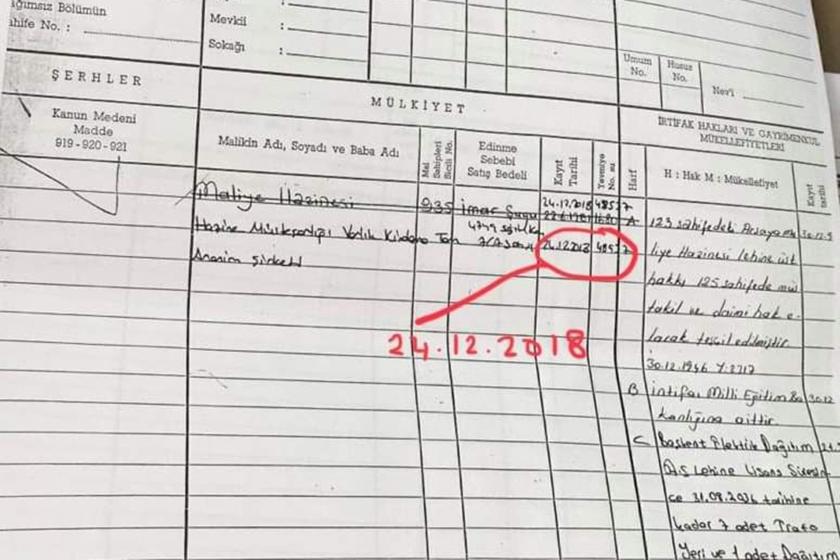 Bölümün
ahife No. :
Mevkii
Sokağı :
Umum No.
Hususi No.
Nev'i
ŞERHLER
MÜLKİYET
İRTİFAK HAKLARI VE GAYRİMENKUL
MÜKELLEFİYETLERİ
Kanun Medeni
Madde
919-920-921
Malikin Adı, Soyadı ve Baba Adı
Mal Sahipleri Sicili No.
Edinme
Sebebi
Satış Bedeli
Kayıt Tarihi
Yevmiye No. su
Harf
H : Hak M : Mükellefiyet
Kayıt tarihi
Maliye Hazinesi 935 İmar 24.12.2018 48527
A 123 sahifedeki 30.12.9
Hazine Müsteşarlığı Varlık Kiralama 24.12.2018 48527
liye Hazinesi lehine üst
Anonim Şirketi
hakkı 125 sahifede müs
takil ve daimi hak o-
larak tescil edilmiştir.
24.12.2018
30.12.1946 Y.2717
B İntifaı Milli Eğitim Ba 30.12
kanlığına aittir.
C Başkent Elektrik Dağıtım
A.Ş Lehine Lisans Süresin
ce 31.08.2036 tarihine
kadar 7 adet Trafo
Yeri ve 1 adet Dağıtım